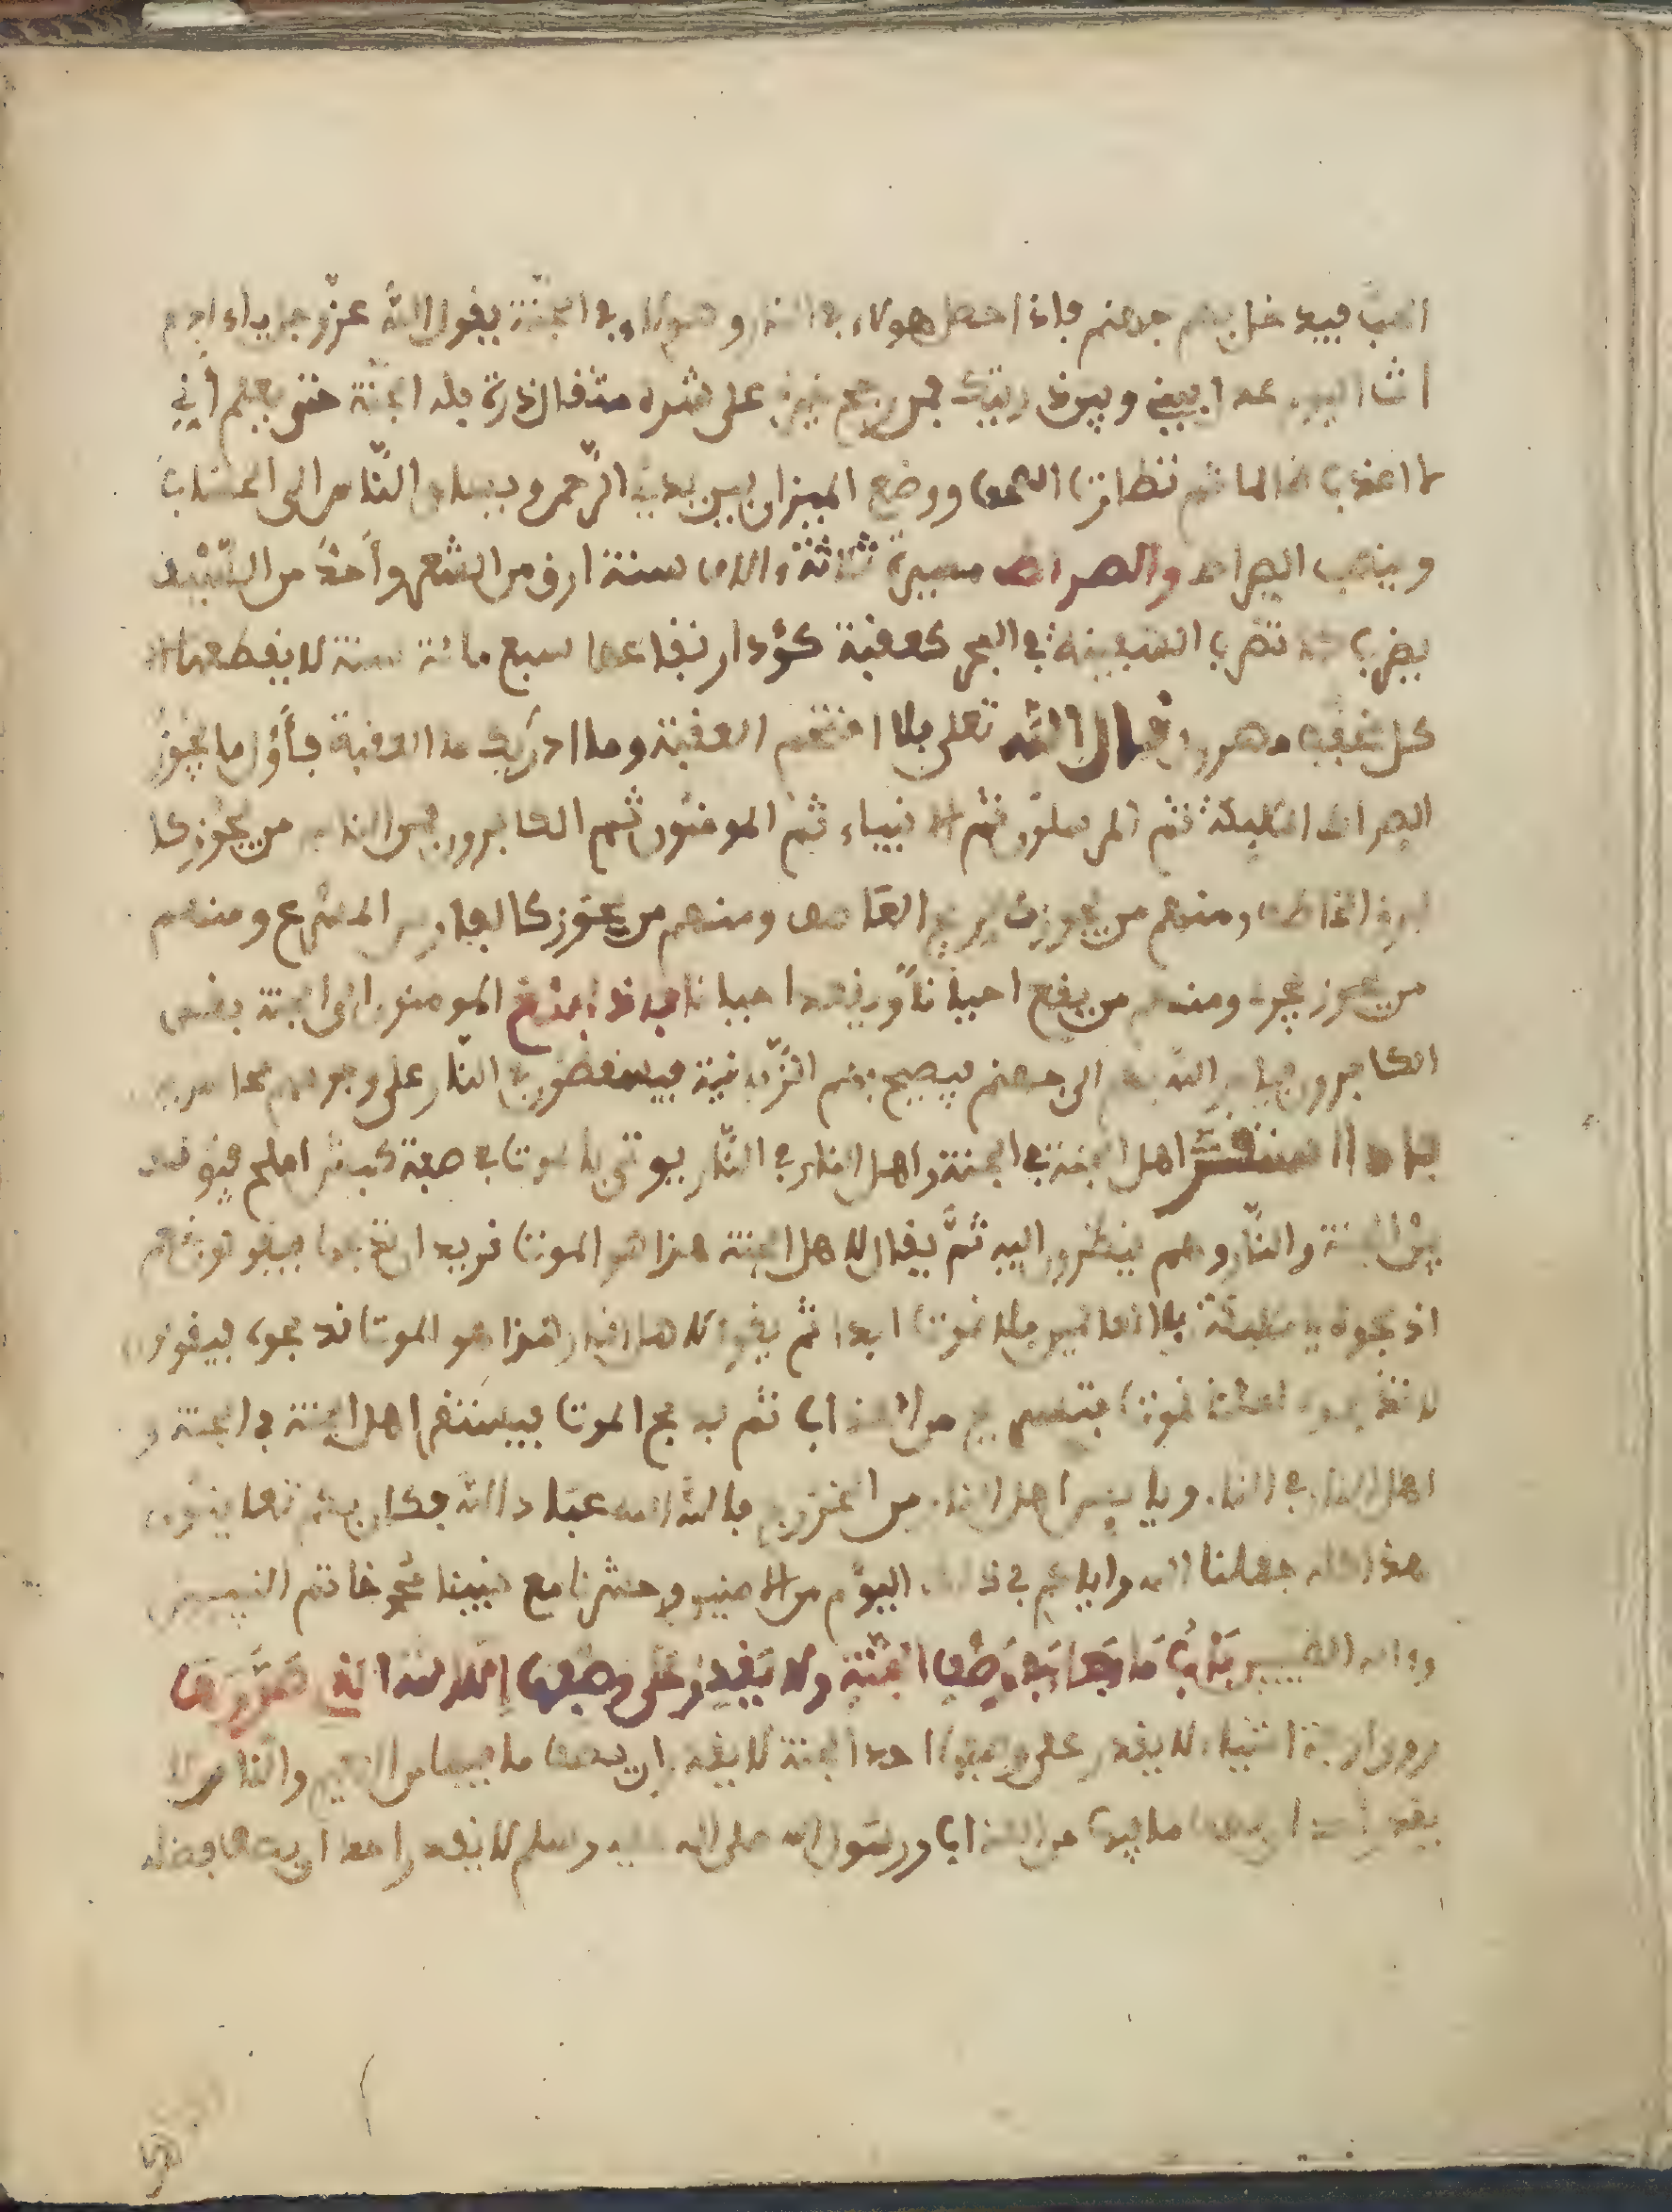 الحب فيدخل بهم جهنم فاذا حصل هولاء في النار وهولاء في الجنة يقول الله عز وجل يا ءادم
اليوم عدل بيني وبين ذريتك فمن رجح خيره على شره مثقال ذرة فله الجنة حتى يعلم أني
لا اعذب ظالما ثم تطاير الصحف ووضع الميزان بين يدي الرحمن ويساق الناس الى الحساب
وينصب الصراط والصراط مسيرة ثلاثة ءالاف سنة ارق من الشعر وأحد من السيف
يضرب تضرب السفينة في البحر كعقبة كؤد ارتفاعها سبع مائة سنة لا يقطعها
كل قال الله تعلى فلا اقتحم العقبة وما ادريك ما العقبة فأول ما يجوز
الصراط الملئكة ثم المرسلون ثم الانبياء ثم المومنون ثم الكافرون فمن الناس من يجوز كا
لبرق الخاطف ومنهم من يجوز كالريح العاصف ومنهم من يجوز كالفارس المسرع ومنهم
من يجوز يجرى ومنهم من يقع احيانا ويقعد احيانا فاذا بلغ المومنون الى الجنة بقى
الكافرون الى جهنم فيصيح بهم الزبانية فيسقطون في النار على وجوههم
فاذا استقر اهل الجنة في الجنة واهل النار في النار يوتى بالموت في صفة كبش املح فيوقف
بين الجنة والنار وهم ينظرون اليه ثم يقال لاهل الجنة هذا هو الموت نريد ان نذبحه فيقولون نعم
اذبحوه يا ملئكة فلا ابدا ثم يقول لاهل النار هذا هو الموت نذبحوه فيقولون
لا تذبحوه نموت فنستريح من العذاب ثم يذبح الموت فيستقر اهل الجنة في الجنة و
اهل النار في النار ويايس اهل النار من الخروج فالله الله عباد الله فكان بكم تعاينون
هذا كله جعلنا الله واياكم في ذلك اليوم من الامنين وحشرنا مع نبينا محمد خاتم النبيين
وءاله الطيبين باب ما جاء في وصف الجنة ولا يقدر على وصفها إلا الله الذي صورها
روى اربعة اشياء لا يقدر على وصفها احد الجنة لا يقدر ان يصف ما فيها من النعيم والنار لا
يقدر احد ان يصف ما فيها من العذاب ورسول الله صلى الله عليه وسلم لا يقدر احد ان يصف فضله